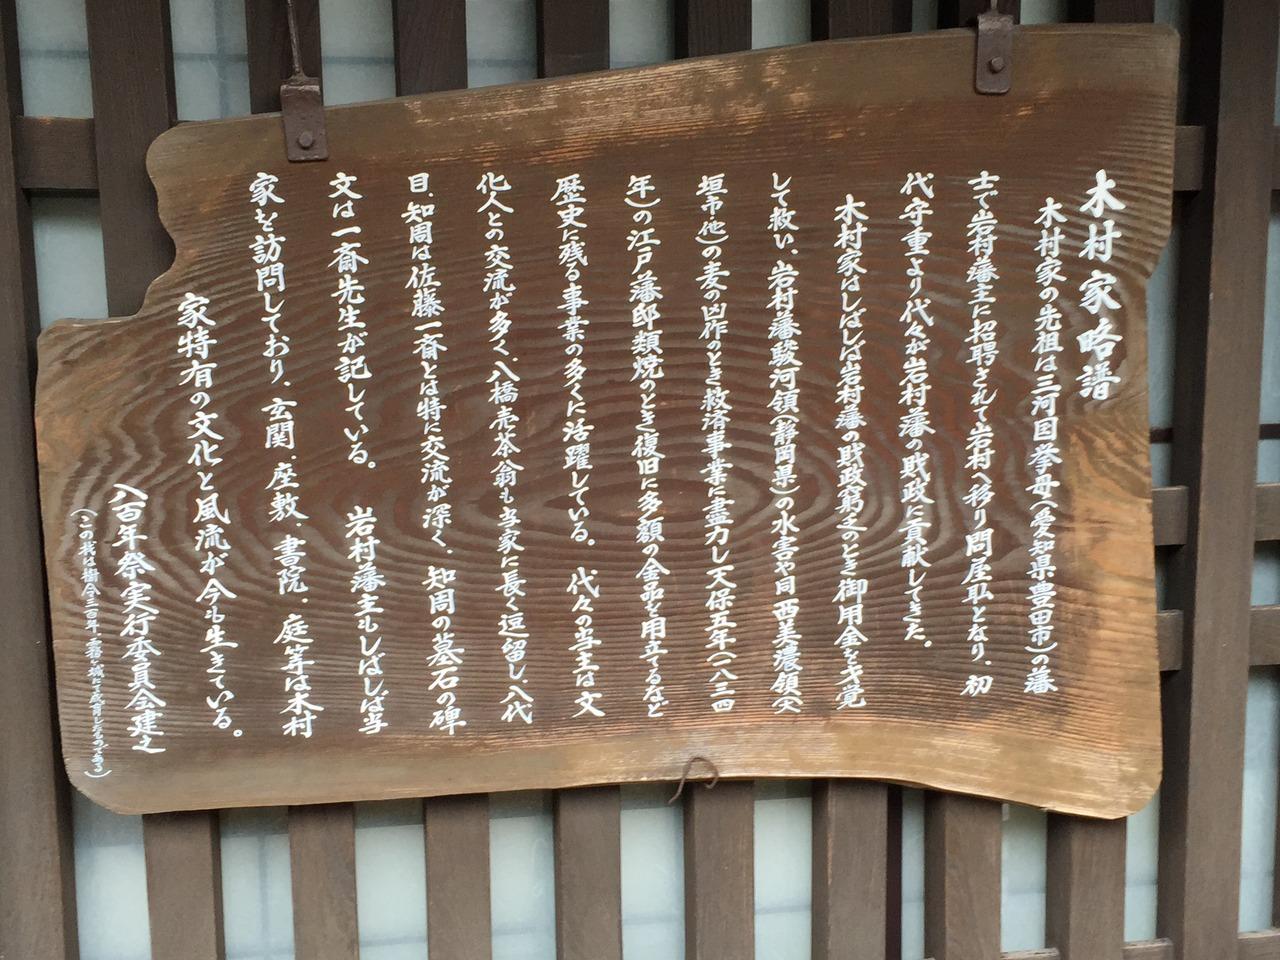 木村家略譜
木村家の先祖は三河国挙母(愛知県豊田市)の藩
士で岩村藩主に招聘されて岩村へ移り問屋私となり、初
代守重より代々が岩村藩の財政に貢献してきた。
木村家はしばしば岩村藩の財政窮乏のとき御用金を才覚
して救い、岩村藩駿河領(静岡県)の水害や同西美濃領(大
垣市他)の麦の凶作のとき救済事業に盡力し天保五年(一八三四
年)の江戸藩邸類焼のとき復旧に多額の金品を用立てるなど
歴史に残る事業の多くに活躍している。 代々の当主は文
化人との交流が多く、八橋売茶翁も当家に長く逗留し、八代
目、知周は佐藤一斎とは特に交流が深く、知周の墓石の碑
文は一斎先生が記している。 岩村藩主もしばしば当
家を訪問しており、玄関、座敷、書院、庭等は木村
家特有の文化と風流が今も生きている。
八百年祭実行委員会建之
(この板は樹令三百年、霧ヶ城